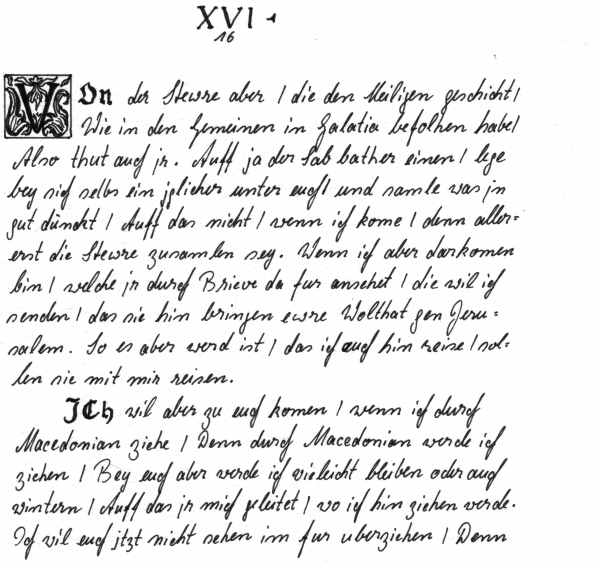 XVI
16
VOn der Stewre aber / die den Heiligen geschicht /
Wie ich den Gemeinen in Galatia befolhen habe /
Also thut auch jr. Auff ja der Sabbather einen / lege
bey sich selbs ein jglicher unter euch / und samle was jn
gut dünckt / Auff das nicht / wenn ich kome / denn aller=
erst die Stewre zusamlen sey. Wenn ich aber darkomen
bin / welche jr durch Brieve da fur ansehet / die wil ich
senden / das sie hin bringen ewre Wolthat gen Jeru=
salem. So es aber werd ist / das ich auch hin reise / sol=
len sie mit mir reisen.
ICh wil aber zu euch komen / wenn ich durch
Macedonian ziehe / Denn durch Macedonian werde ich
ziehen / Bey euch aber werde ich vieleicht bleiben oder auch
wintern / Auff das jr mich geleitet / wo ich hin ziehen werde.
Ich wil euch jtzt nicht sehen im fur uberziehen / Denn